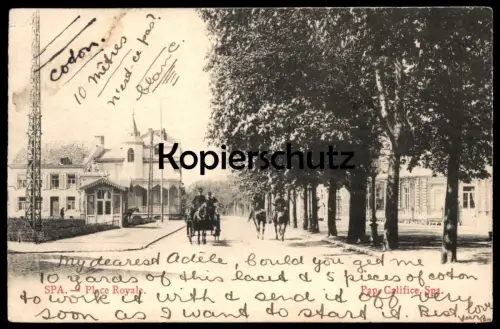 coton.
10 mètres
n'est ce pas?
blanc
Kopierschutz
SPA. - Place Royale.
Pap. Califice, Spa.
My dearest Adèle, Could you get me
10 yards of this lace & 5 pieces of coton
to work it with & send it off very
soon as I want to start it. Best love